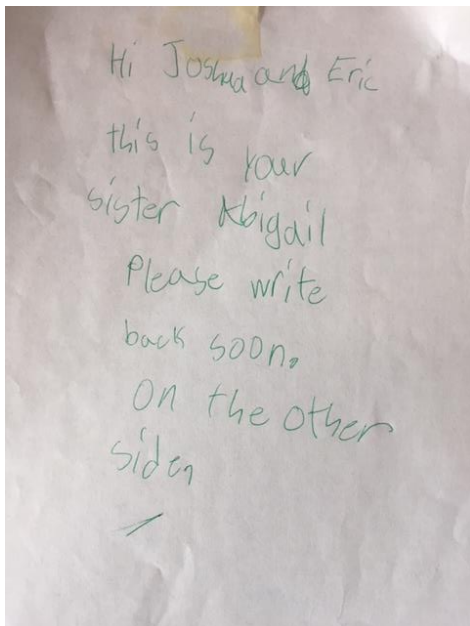 Hi Joshua and Eric
this is your
sister Abigail
Please write
back soon.
On the other
side,